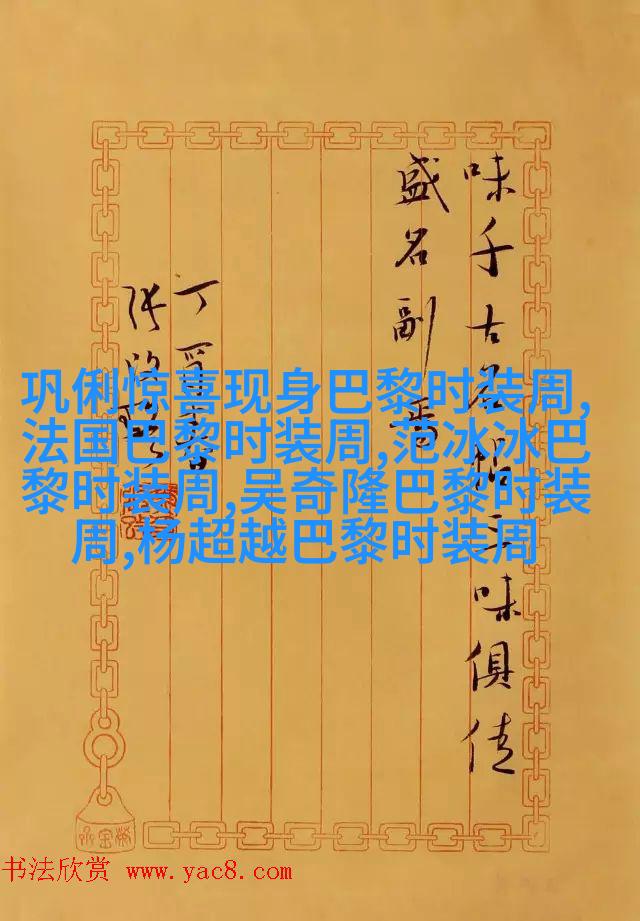 巩俐惊喜现身巴黎时装周,
法国巴黎时装周,范冰冰巴
黎时装周,吴奇隆巴黎时装
周,杨超越巴黎时装周
味千古名帖三味俱佳
盛名副焉
丁酉
张
荣宝斋
书法欣赏 www.yac8.com